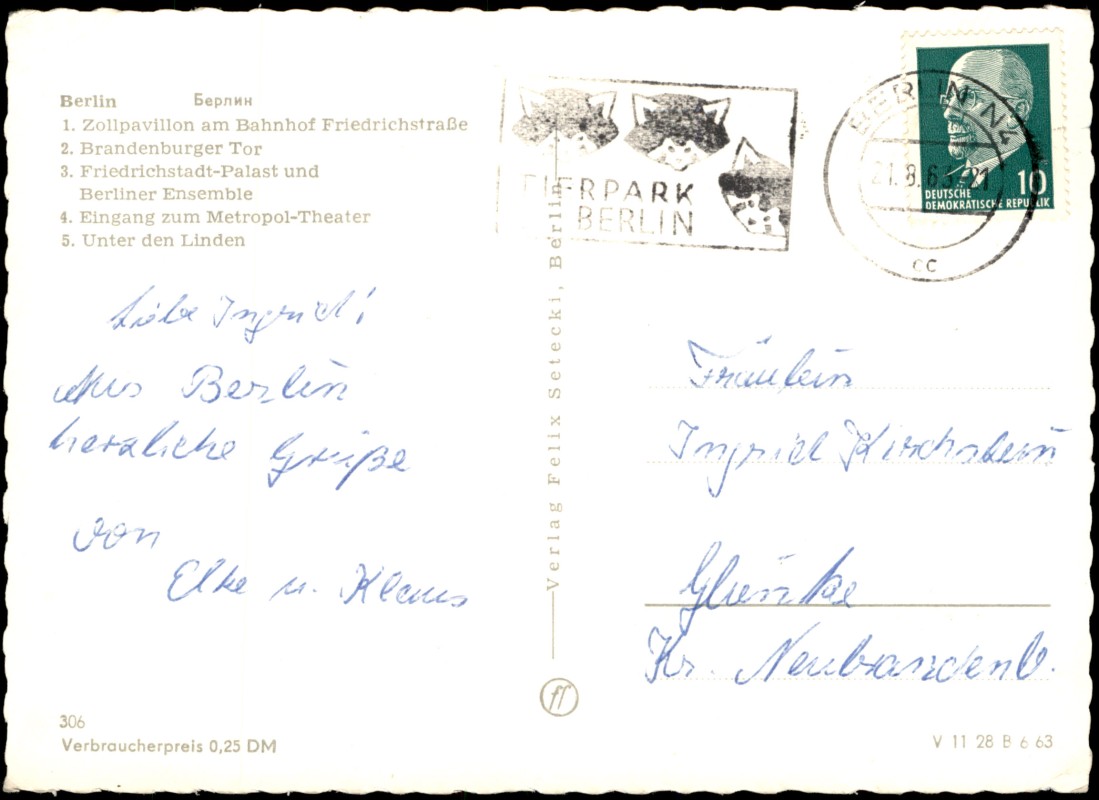 Berlin Берлин
1. Zollpavillon am Bahnhof Friedrichstraße
2. Brandenburger Tor
3. Friedrichstadt-Palast und
Berliner Ensemble
4. Eingang zum Metropol-Theater
5. Unter den Linden
TIERPARK
BERLIN
BERLIN N4
21.8.6 -21
cc
10
DEUTSCHE
DEMOKRATISCHE REPUBLIK
Liebe Ingrid!
Aus Berlin
herzliche Grüße
von
Elke u. Klaus
Verlag Felix Setecki, Berlin
ff
Fräulein
Ingrid Kirchstein
Glienke
Kr. Neubrandenb.
306
Verbraucherpreis 0,25 DM
V 11 28 B 6 63